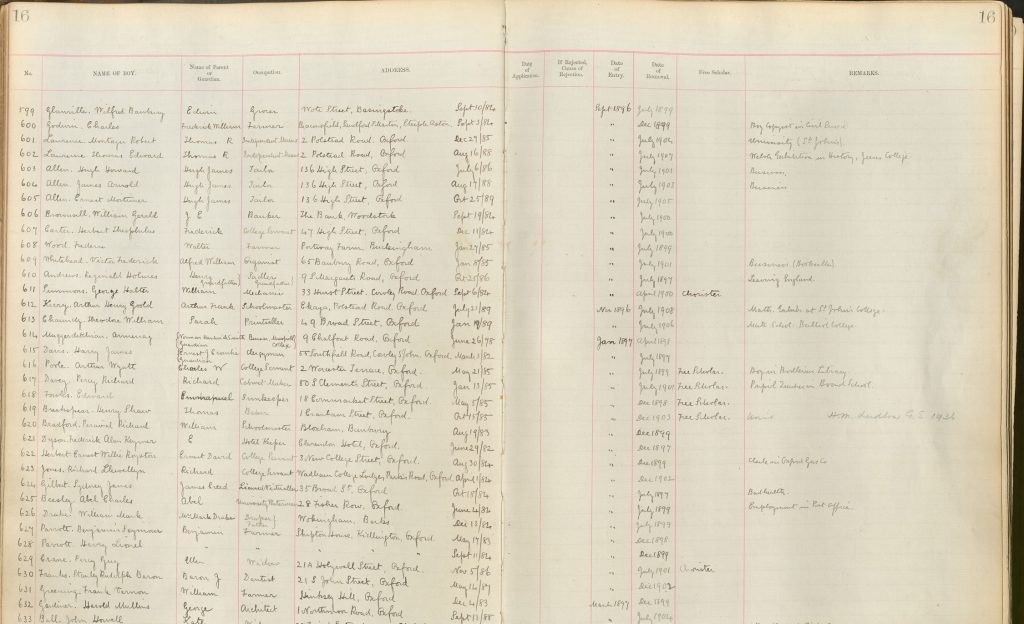 16 16
No. NAME OF BOY. Name of Parent or Guardian. Occupation. ADDRESS. Date of Application. If Rejected, Cause of Rejection. Date of Entry. Date of Removal. Free Scholar. REMARKS.
599 Glanville. Wilfred Banbury Edwin Grocer Wote Street, Basingstoke. Sept 10/84 Sept 1896 July 1899
600 Godwin. Charles Frederick William Farmer Sandford, Steeple Aston. Sept 3/84 " Dec 1899 Boy Copyist in Civil Service
601 Lawrence. Montagu Robert Thomas R Independent Means 2 Polstead Road. Oxford Dec 27/85 " July 1904 University (St John's).
602 Lawrence Thomas Edward Thomas R Independent Means 2 Polstead Road, Oxford Aug 16/88 " July 1907 Welsh Exhibition in History, Jesus College
603 Allen. Hugh Howard Hugh James Tailor 136 High Street, Oxford July 6/86 " July 1901 Business.
604 Allen. James Arnold Hugh James Tailor 136 High Street, Oxford Aug 17/88 " July 1903 Business
605 Allen. Ernest Mortimer Hugh James Tailor 136 High Street, Oxford Oct 25/89 " July 1905
606 Brownsill. William Gerald J. E Banker The Bank, Woodstock Sept 19/84 " July 1900
607 Carter. Herbert Theophilus Frederick College Servant 47 High Street, Oxford Dec 11/84 " July 1900
608 Wood. Frederic Walter Farmer Portway Farm, Buckingham Jan 27/85 " July 1899
609 Whitehead. Victor Frederick Alfred William Organist 65 Banbury Road, Oxford Jan 8/85 " July 1901 Business
610 Andrews. Reginald Holmes Henry (Grandfather) Sadler (Grandfather) 9 S. Margarets Road, Oxford Oct 20/86 " July 1897 Leaving England.
611 Simmons. George Walter William Mechanic 33 Hurst Street. Cowley Road. Oxford Sept 6/84 " April 1900 Chorister
612 Kerry. Arthur Henry Gould Arthur Frank Schoolmaster Polstead Road, Oxford July 21/89 Nov 1896 July 1908 Math. Exhib. at St John's College.
613 Chaundy. Theodore William Sarah Printseller 49 Broad Street, Oxford Jan 19/89 " July 1906 Math. Schol. Balliol College
614 Guardian Mansfield College 9 Chalfont Road, Oxford June 26/78 Jan 1897 April 1898
615 Davis. Harry James Guardian Clergyman 55 Southfield Road, Cowley S. John. Oxford March 3/82 " July 1897
616 Poole. Arthur Wyatt Charles W College Servant 2 Worcester Terrace, Oxford. May 21/85 " July 1899 Free Scholar. Boy in Bodleian Library.
617 Davey. Percy Richard Richard Cabinet Maker 50 S. Clements Street, Oxford. Jan 13/85 " July 1901 Free Scholar. Pupil Teacher in Board School.
618 Fowler. Edward Emmanuel Innkeeper 18 Cornmarket Street, Oxford. May 5/85 " Dec 1898 Free Scholar.
619 Brakspear. Henry Shaw Thomas Baker 1 Cranham Street, Oxford. Oct 15/85 " Dec 1903 Free Scholar. 1926
620 Bradford. Percival Richard William Schoolmaster Bloxham, Banbury Aug 19/83 " Dec 1899
621 Dyson. Frederick Alan Keymer E Hotel Keeper Clarendon Hotel, Oxford. June 29/82 " Dec 1897
622 Herbert. Ernest Willie Royston Ernest David College Servant 3 New College Street, Oxford. Aug 30/84 " Dec 1899 Clerk in Oxford Gas Co
623 Jones. Richard Llewellyn Richard College Servant Wadham College Lodge, Parks Road, Oxford April 1/84 " Dec 1902
624 Gilbert. Sydney James James Creed Licensed Victualler 35 Broad St. Oxford Oct 18/84 " July 1897 Bad health.
625 Beesley. Abel Charles Abel University Waterman 28 Fisher Row. Oxford June 4/84 " July 1899 Employment in Post Office.
626 Drake. William Mark Mr Mark Drake Draper Wokingham, Berks Dec 13/84 " July 1899
627 Parrott. Benjamin Seymour Benjamin Farmer Shipton House, Kidlington, Oxford. May 17/83 " Dec 1898
628 Parrott. Harry Lionel " " " Sept 11/84 " Dec 1899
629 Crane. Percy Guy Ellen Widow 21A Holywell Street. Oxford. Nov 5/86 " July 1901 Chorister
630 Franks. Stanley Rudolph Baron Baron J Dentist 21 S. John Street, Oxford. May 14/87 " Dec 1902
631 Greening. Frank Vernon William Farmer Hinksey Hill, Oxford Dec 4/83 " Dec 1899
632 Gardiner. Harold Mullins George Architect 1 Northmoor Road, Oxford Sept 13/88 March 1897 July 1904
633 Ball. John Howell Kate